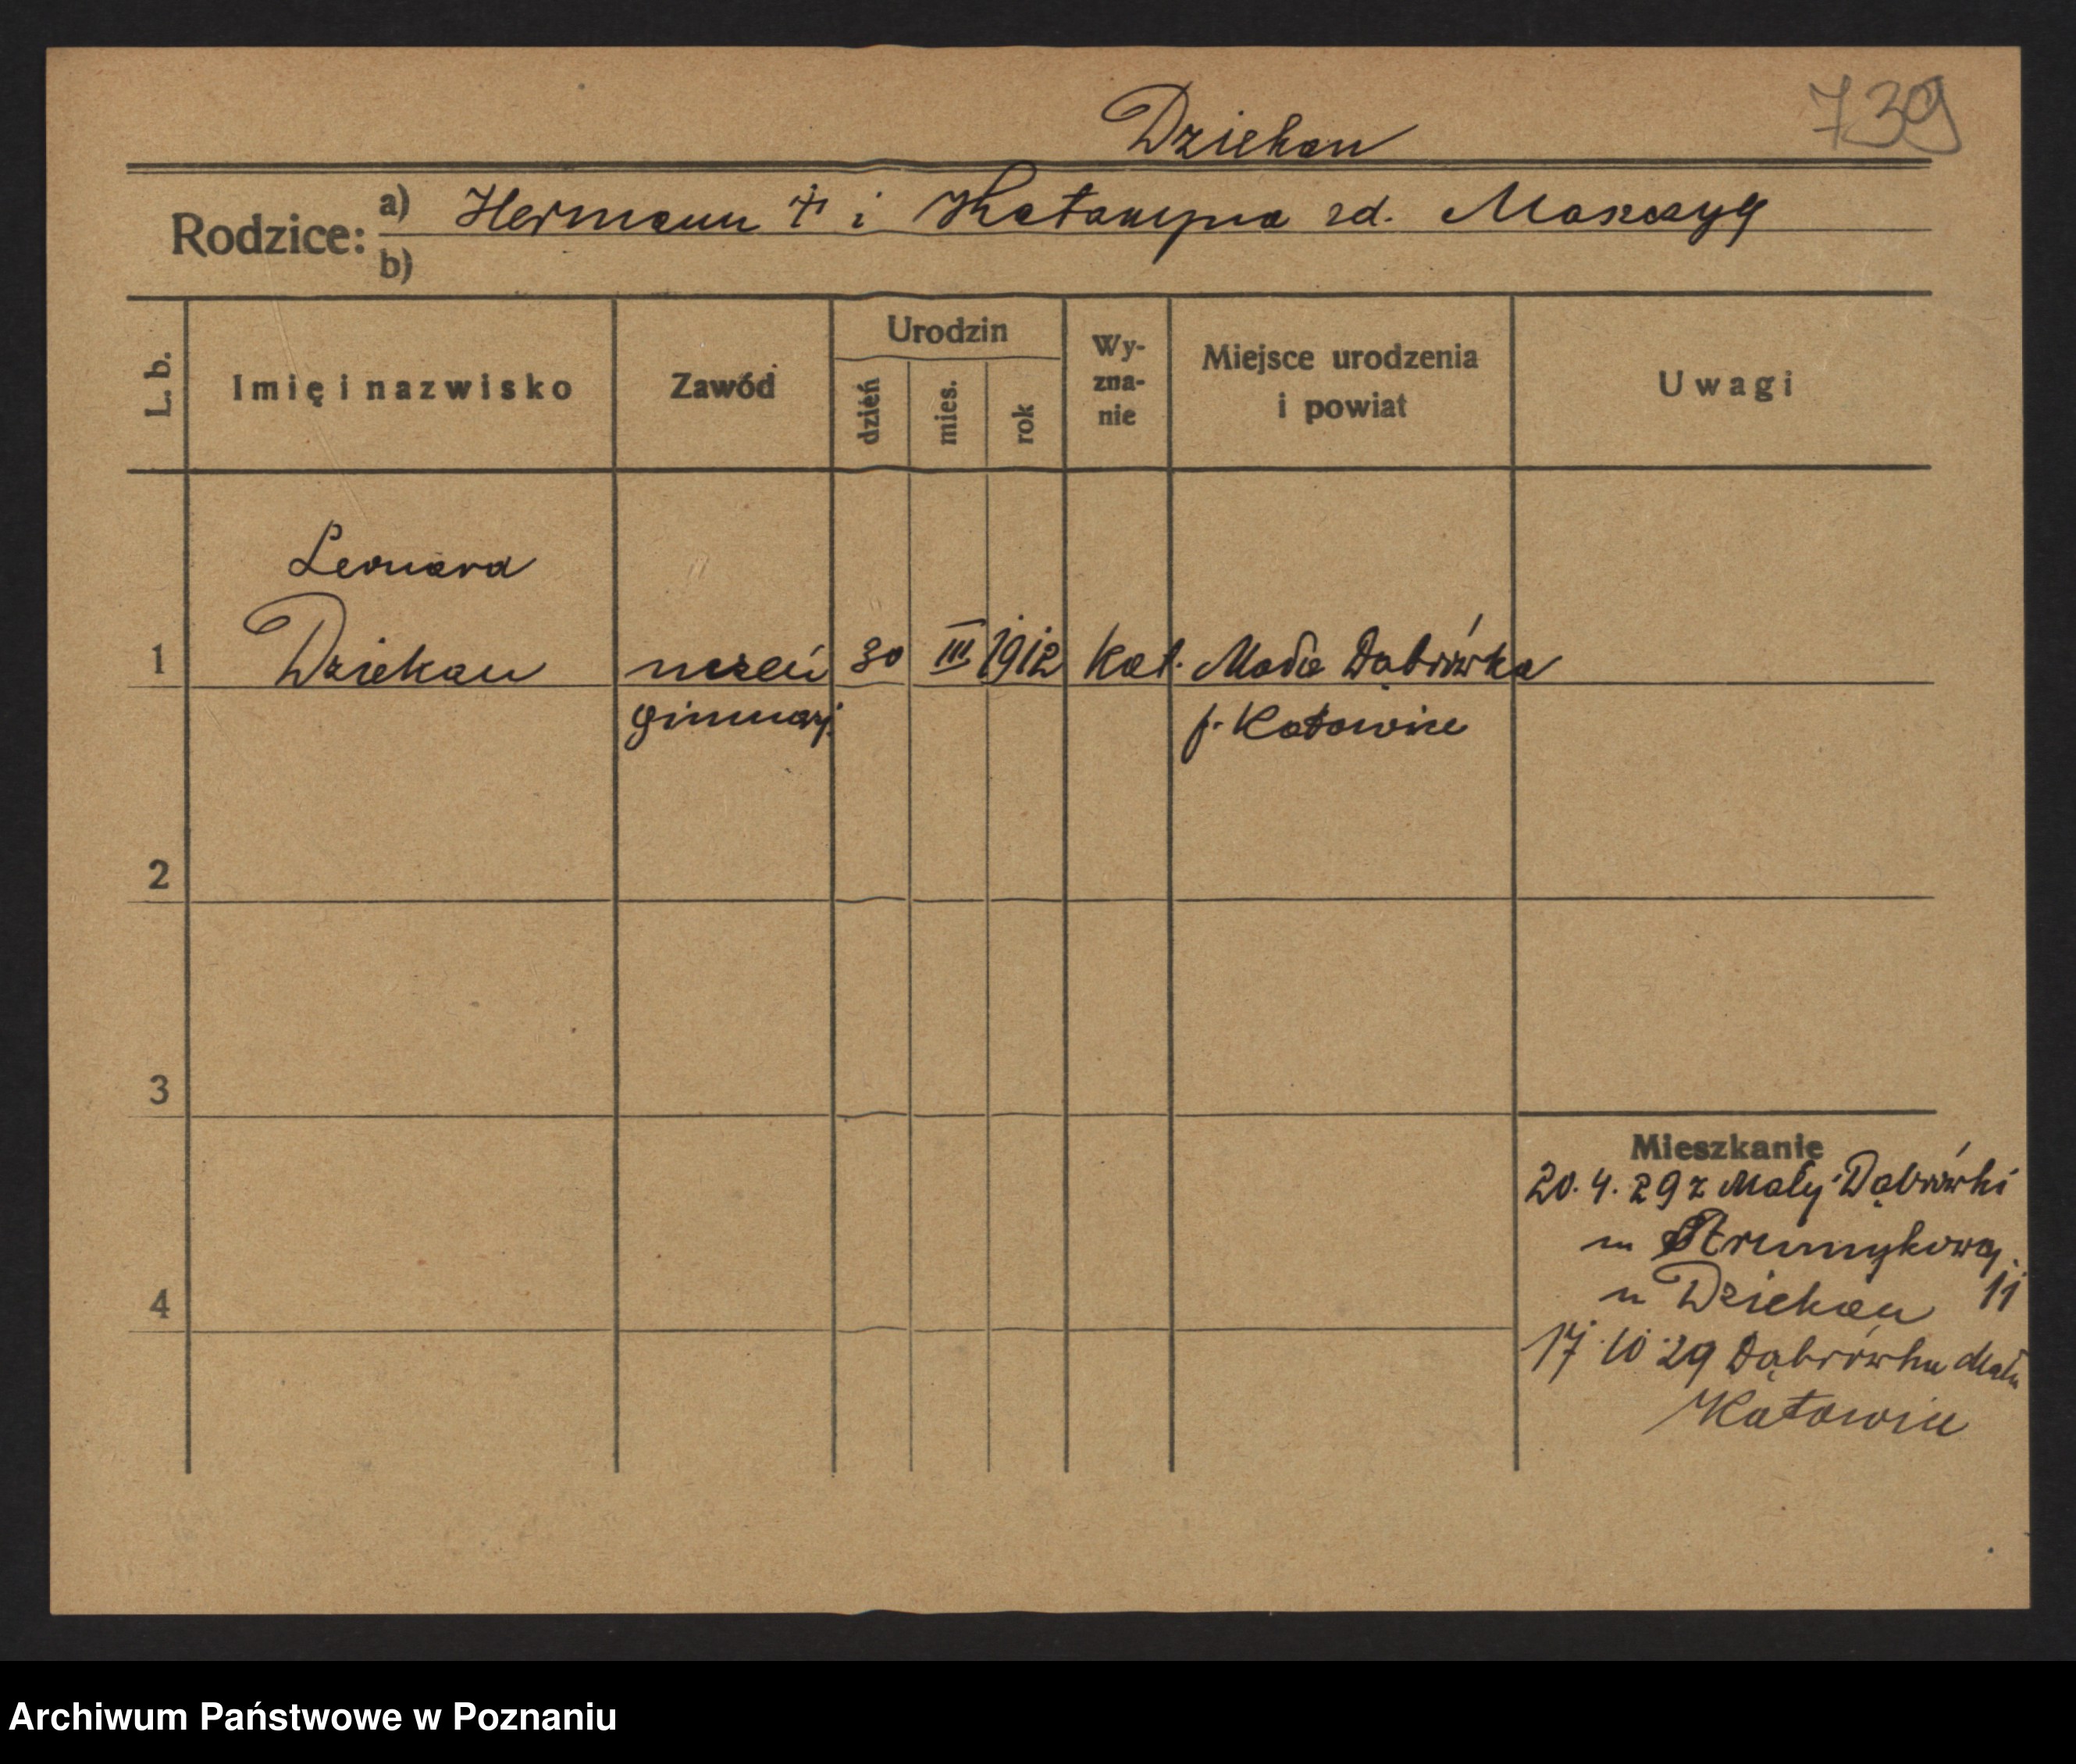 739
Dziekan
Rodzice: a) Hermann † i Katarzyna rd.
b)
L. b.
Imię i nazwisko
Zawód
Urodzin
dzień
mies.
rok
Wy-
zna-
nie
Miejsce urodzenia
i powiat
Uwagi
Leonard
1 Dziekan uczeń 30 III 1912 kat. Mała Dąbrówka
gimnazj. p. Katowice
2
3
4
Mieszkanie
20. 4. 29 z Mały Dąbrówki
Strumykowa
u Dziekan 11
17 10 29 Dąbrówka Mała
Katowice
Archiwum Państwowe w Poznaniu